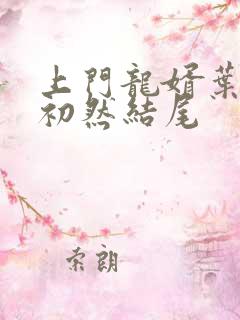 上門龍婿葉
初然結尾
索朗